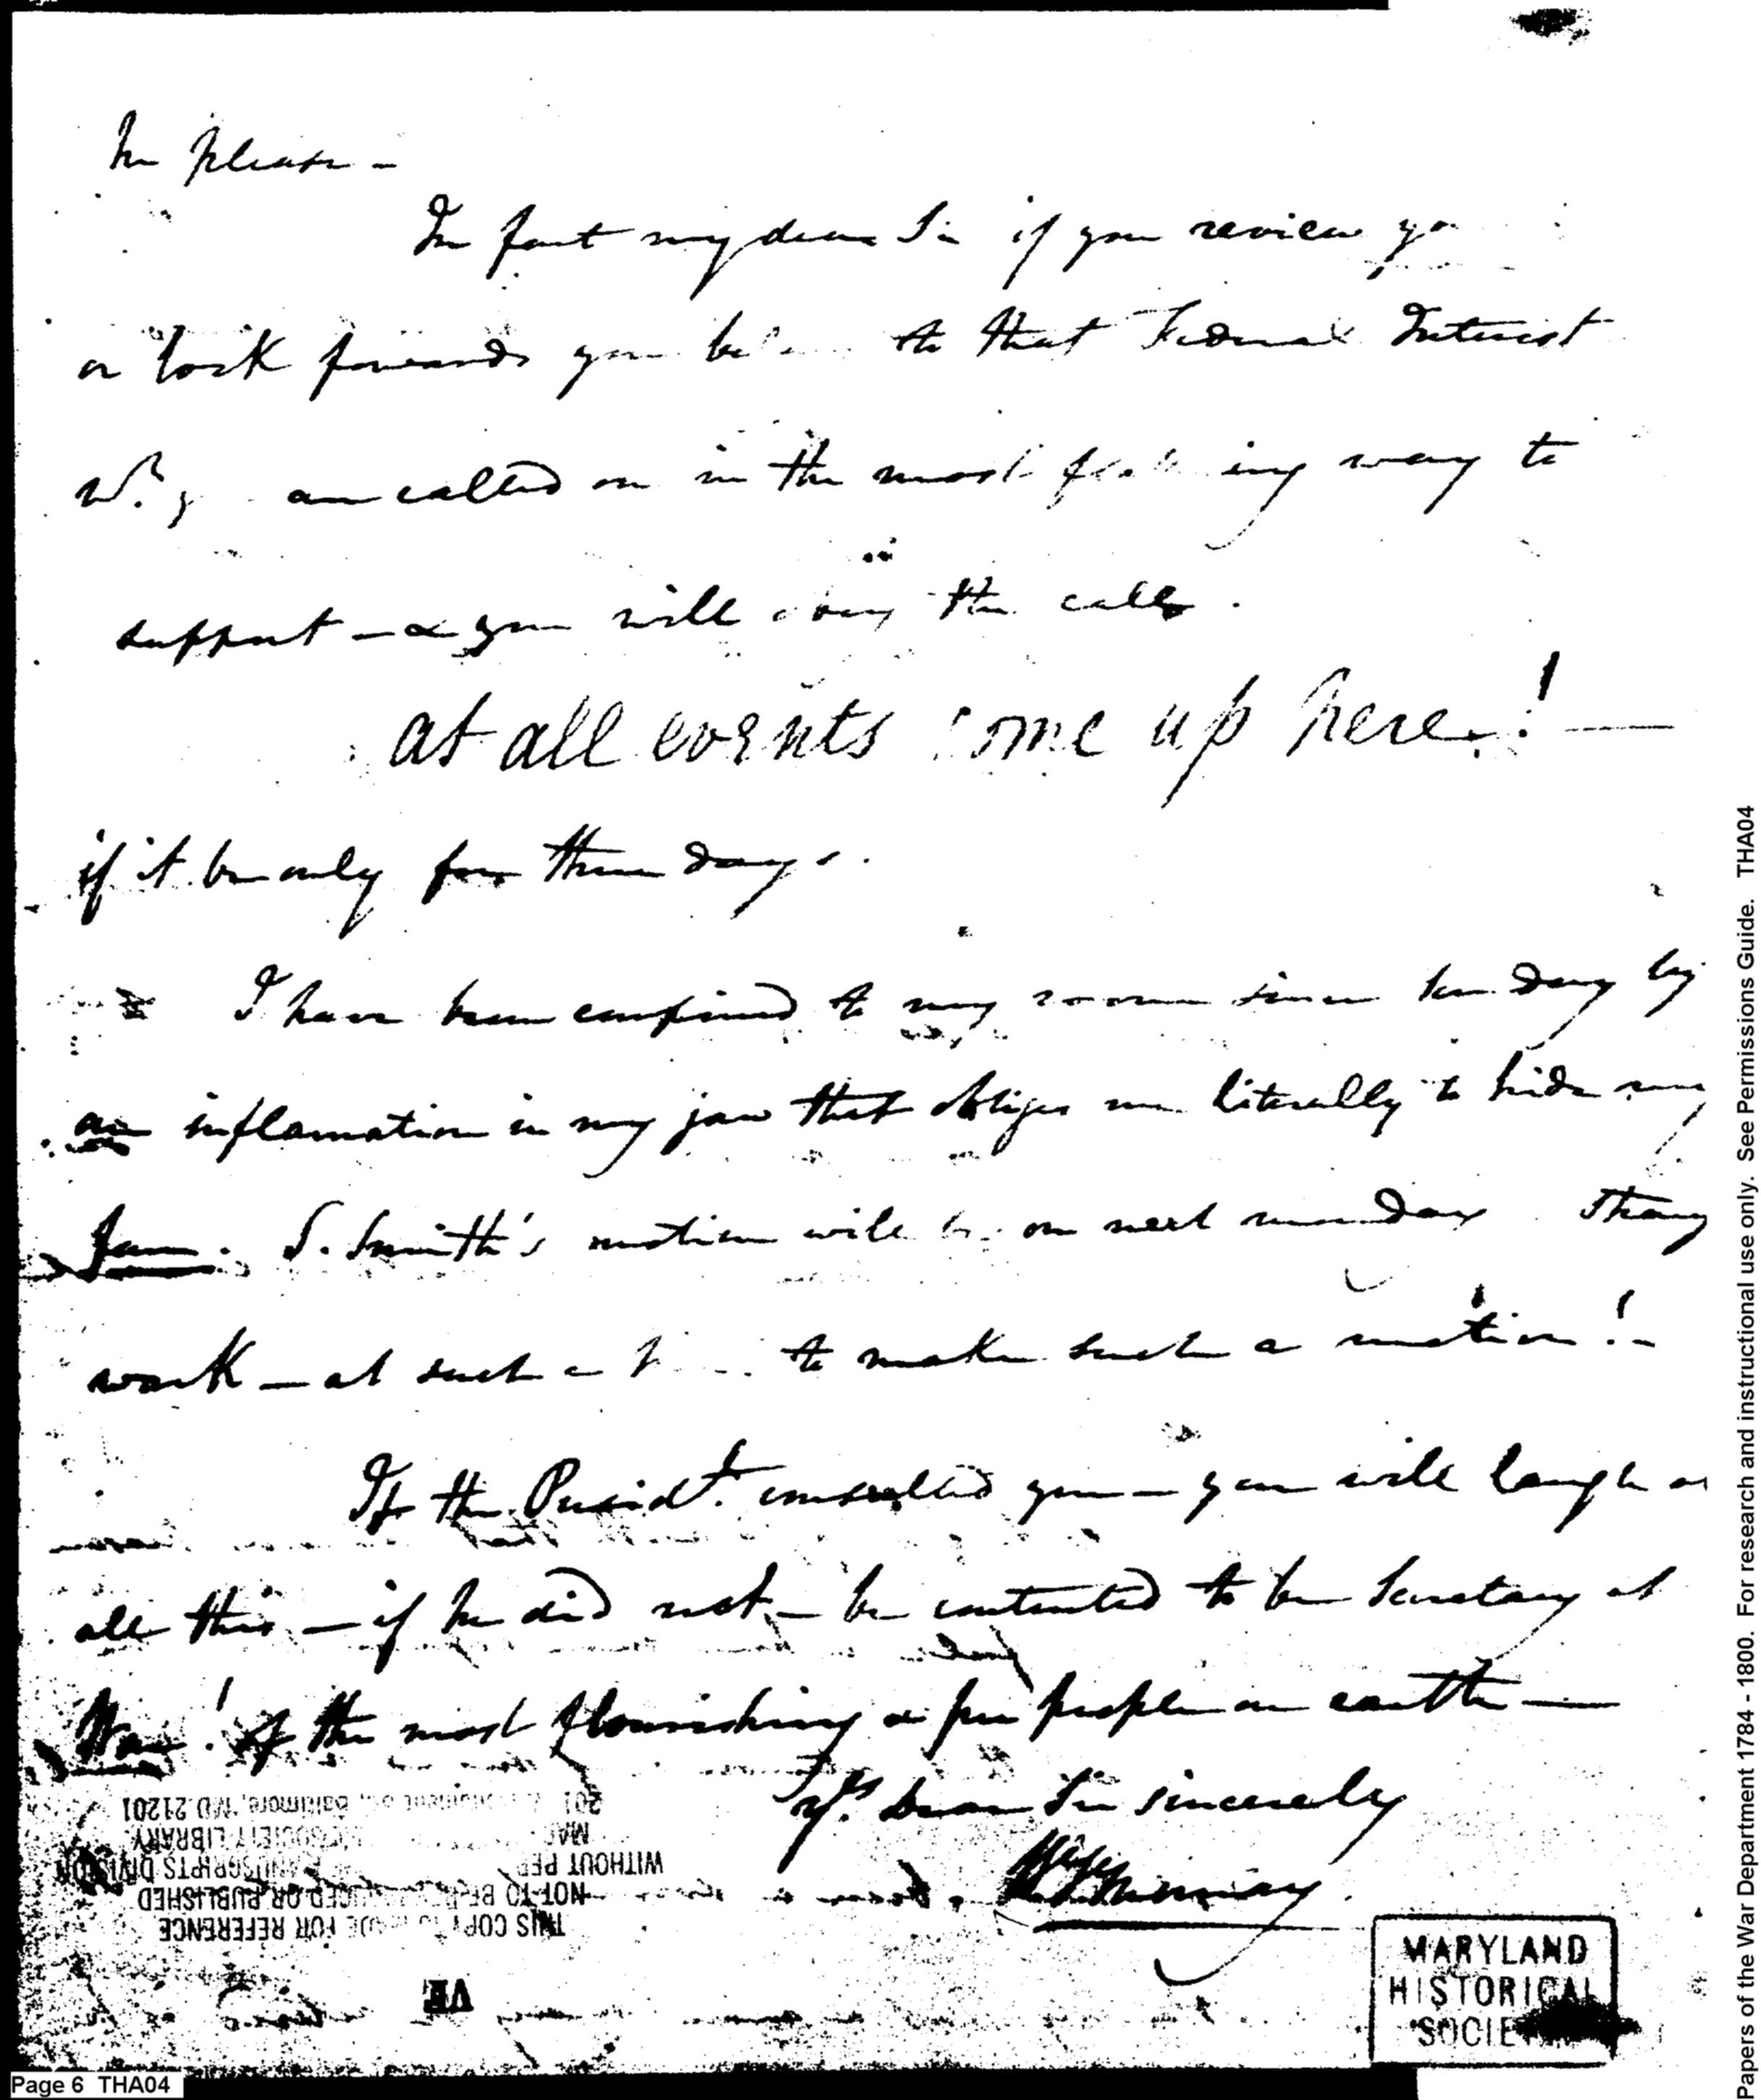 he please -
In fact my dear Sir if you review yo
or look forwards you to that Federal Interest
wh. are called on in the most way to
support - & you will obey the call.
at all events come up here! —
if it be only for three days.
I have been confined to my room since by
an inflamation in my jaw that obliges me literally to hide my
Jaw. S. Smith's motion will be on next monday strong
work — at such a to make such a motion! -
If the Presidt. consulted you — you will laugh at
all this — if he did not - be contented to be Secretary at
War! of the most flourishing & free people on earth —
Yrs. Dear Sir sincerely
W V Murray
THIS COPY IS MADE FOR REFERENCE
NOT TO BE OR PUBLISHED
WITHOUT PER
MANUSCRIPTS DIVISION
MAR SOCIETY LIBRARY
201 Baltimore, MD 21201
MARYLAND
HISTORICAL
SOCIE
Page 6 THA04
Papers of the War Department 1784 - 1800. For research and instructional use only. See Permissions Guide. THA04